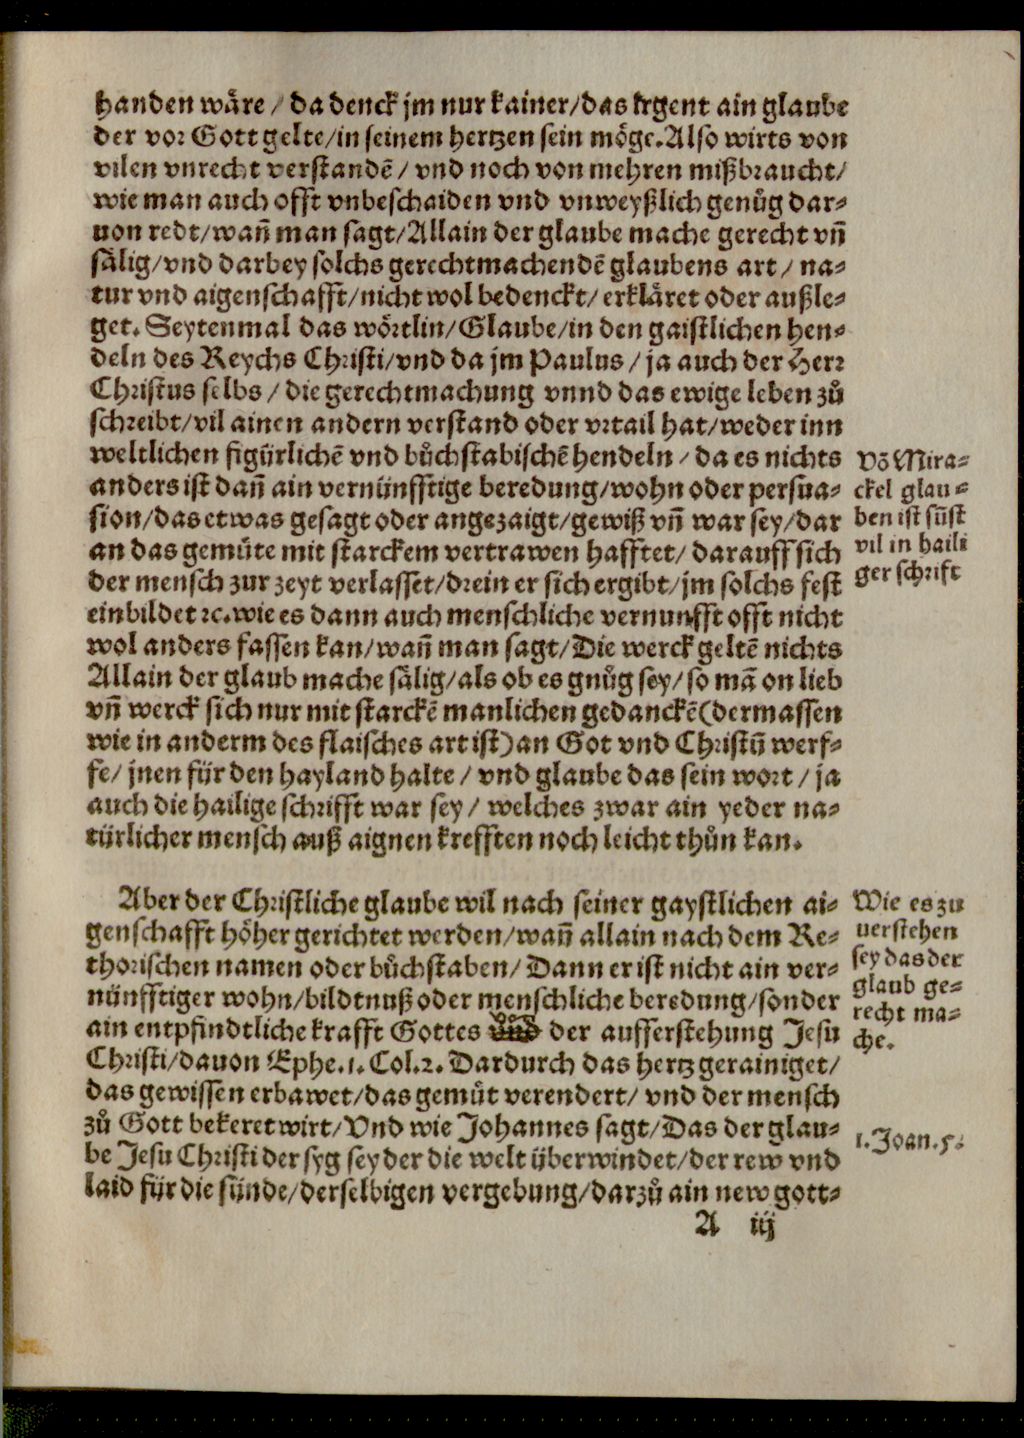 handen wåre / da denck jm nur kainer/das jrgent ain glaube
der vor Gott gelte/in seinem hertzen sein möge.Also wirts von
vilen vnrecht verstandē / vnd noch von mehren mißbraucht/
wie man auch offt vnbeschaiden vnd vnweyßlich genůg dar⸗
uon redt/wañ man sagt/Allain der glaube mache gerecht vñ
sålig/vnd darbey solchs gerechtmachendē glaubens art / na⸗
tur vnd aigenschafft/nicht wol bedenckt/ erklåret oder außle⸗
get. Seytenmal das wörtlin/Glaube/in den gaistlichen hen⸗
deln des Reychs Christi/vnd da jm Paulus / ja auch der Herr
Christus selbs / die gerechtmachung vnnd das ewige leben zů
schreibt/vil ainen andern verstand oder vrtail hat/weder inn
weltlichen figürlichē vnd bůchstabischē hendeln / da es nichts
anders ist dañ ain vernünfftige beredung/wohn oder persua⸗
sion/das etwas gesagt oder angezaigt/gewiß vñ war sey/dar
an das gemüte mit starckem vertrawen hafftet/ darauff sich
der mensch zur zeyt verlasset/drein er sich ergibt/jm solchs fest
einbildet ꝛc.wie es dann auch menschliche vernunfft offt nicht
wol anders fassen kan/wañ man sagt/Die werck geltē nichts
Allain der glaub mache sålig/als ob es gnůg sey/so mā on lieb
vñ werck sich nur mit starckē manlichen gedanckē(dermassen
wie in anderm des flaisches art ist)an Got vnd Christū werf⸗
fe/ jnen für den hayland halte / vnd glaube das sein wort / ja
auch die hailige schrifft war sey / welches zwar ain yeder na⸗
türlicher mensch auß aignen krefften noch leicht thůn kan.
Vō Mira⸗
ckel glau⸗
ben ist sūst
vil in haili
ger schrift
Aber der Christliche glaube wil nach seiner gaystlichen ai⸗
genschafft höher gerichtet werden/wañ allain nach dem Re⸗
thorischen namen oder bůchstaben/ Dann er ist nicht ain ver⸗
nünfftiger wohn/bildtnuß oder menschliche beredung/sonder
ain entpfindtliche krafft Gottes der aufferstehung Jesu
Christi/dauon Ephe.1. Col.2. Dardurch das hertz gerainiget/
das gewissen erbawet/das gemüt verendert/ vnd der mensch
zů Gott bekeret wirt/Vnd wie Johannes sagt/Das der glau⸗
be Jesu Christi der syg sey der die welt überwindet/der rew vnd
laid für die sünde/derselbigen vergebung/darzů ain new gott⸗
Wie es zu
uerstehen
sey das der
glaub ge⸗
recht ma⸗
che.
1.Joan.5.
A iij